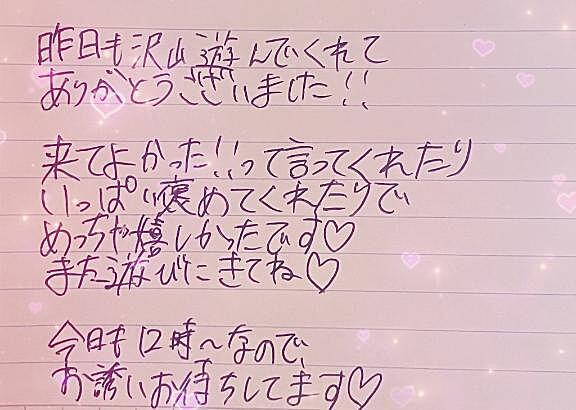 昨日も沢山遊んでくれて
ありがとうございました!!
来てよかった!!って言ってくれたり
いっぱい褒めてくれたりで
めっちゃ嬉しかったです♡
また遊びにきてね♡
今日も12時〜なので、
お誘いお待ちしてます♡